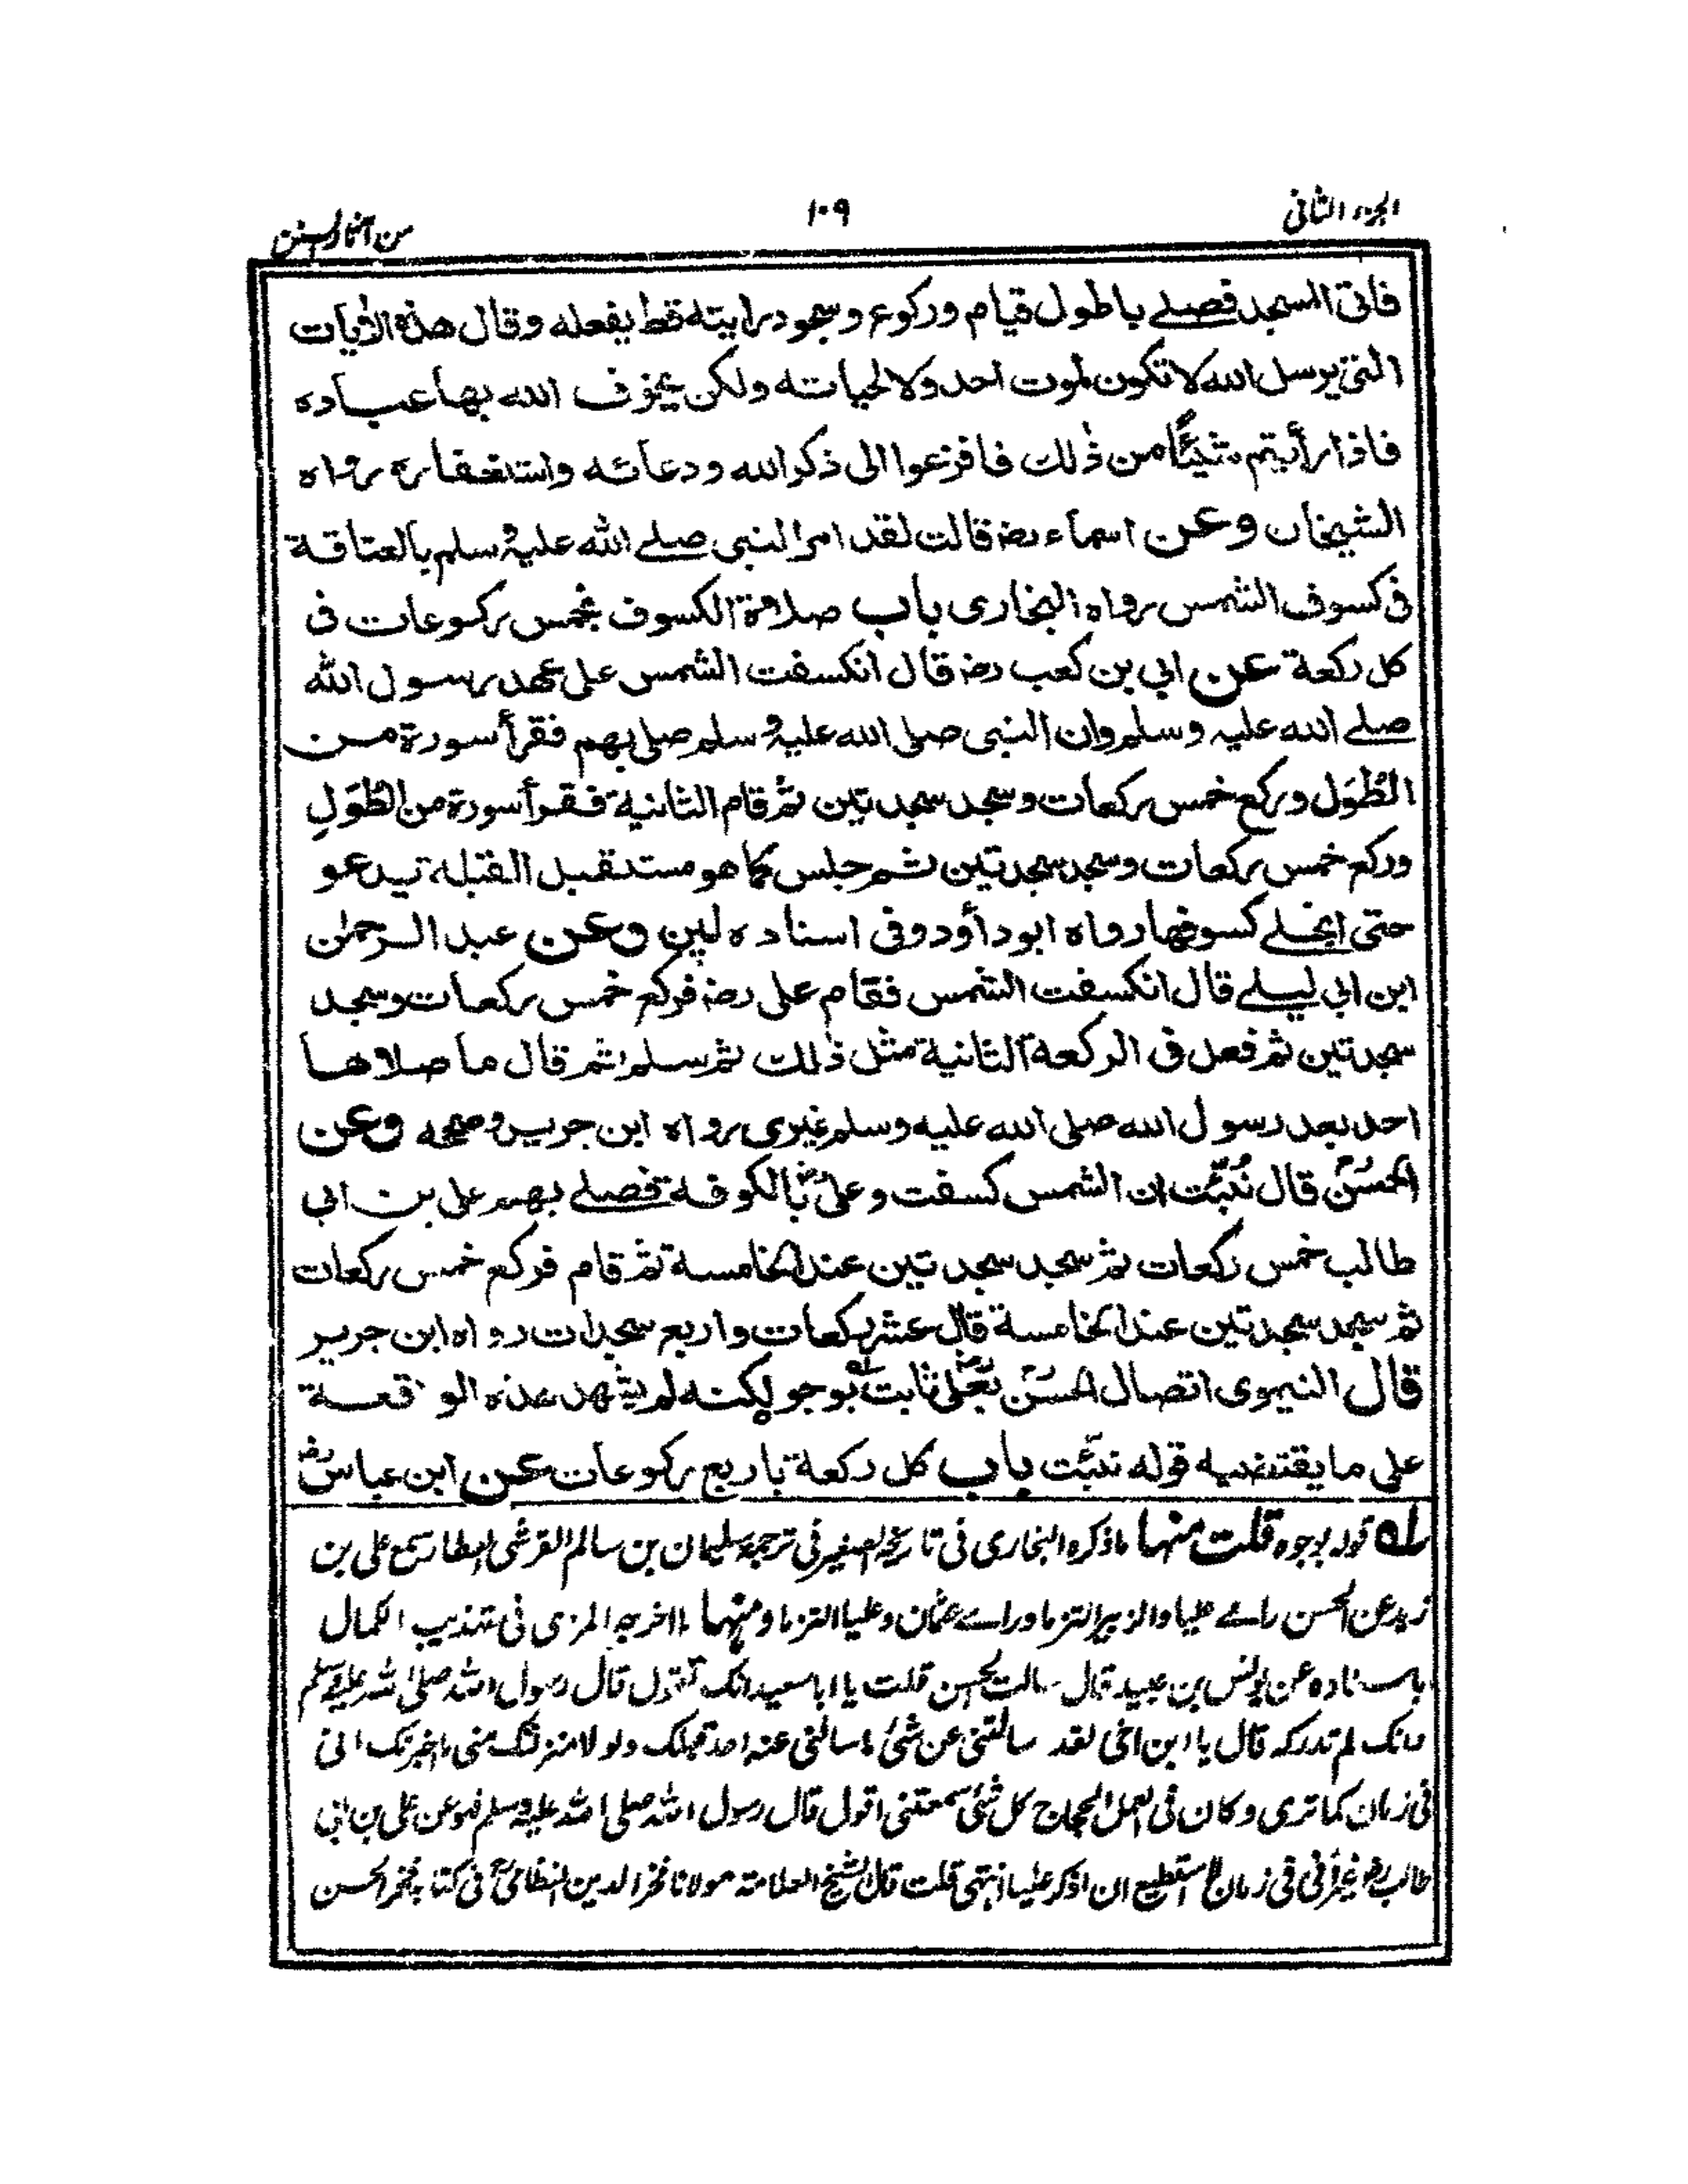 الجزء الثانى
١٠٩
من آثار السنن
فاتى المسجد فصلے باطول قيام وركوع وسجود رايته قط يفعله وقال هذه الاٰيات
التى يرسل الله لا تكون لموت احد ولا لحياته ولكن يخوف الله بها عباده
فاذا رأيتم شيئًا من ذٰلك فافزعوا الى ذكر الله ودعائه واستغفاره رواه
الشيخان وعن اسماء رضـ قالت لقد امر النبى صلے الله عليه وسلم بالعتاقة
فى كسوف الشمس رواه البخارى باب صلاة الكسوف بخمس ركوعات فى
كل ركعة عن ابي بن كعب رضـ قال انكسفت الشمس على عهد رسول الله
صلے الله عليه وسلم وان النبى صلى الله عليه وسلم صلى بهم فقرأ سورة من
الطُوَل وركع خمس ركعات وسجد سجدتين ثم قام الثانية فقرأ سورة من الطُوَلِ
وركع خمس ركعات وسجد سجدتين ثم جلس كما هو مستقبل القبلة يدعو
حتى انجلے كسوفها رواه ابو داؤد وفى اسناده لين وعن عبد الرحمٰن
ابن ابي ليلے قال انكسفت الشمس فقام على رضـ فركع خمس ركعات وسجد
سجدتين ثم فعل فى الركعة الثانية مثل ذٰلك ثم سلم ثم قال ما صلاها
احد بعد رسول الله صلى الله عليه وسلم غيرى رواه ابن جرير وصححه وعن
الحسنؒ قال نُبِّئت ان الشمس كسفت وعلىؓ بالكوفة فصلے بهم على بن ابي
طالب خمس ركعات ثم سجد سجدتين عند الخامسة ثم قام فركع خمس ركعات
ثم سجد سجدتين عند الخامسة قال عشر ركعات واربع سجدات رواه ابن جرير
قال النيموى اتصال الحسنؒ بعلىؓ ثابت بوجوه لكنه لم يشهد هذه الواقعة
على ما يقتضيه قوله نبّئت باب كل ركعة باربع ركوعات عن ابن عباسؓ
لـه قوله بوجوه قلت منها ما ذكره البخارى فى تاريخه الصغير فى ترجمة سليمان بن سالم القرشى العطار سمع على بن
زيد عن الحسن راے عليا والزبير التزما وراے عثمان وعليا التزما ومنها ما اخرجه المزى فى تهذيب الكمال
باسناده عن يونس بن عبيد قال سالت الحسن قلت يا ابا سعيد انك تقول قال رسول الله صلى الله عليه وسلم
وانك لم تدركه قال يا ابن اخى لقد سالتنى عن شئ ما سالنى عنه احد قبلك ولولا منزلتك منى ما اخبرتك انى
فى زمان كما ترى وكان فى عمل الحجاج كل شئى سمعتنى اقول قال رسول الله صلى الله عليه وسلم فهو عن على بن ابى
طالبؓ غير انى فى زمان لا استطيع ان اذكر عليا انتهى قلت قال الشيخ العلامة مولانا فخر الدين النظامىؒ فى كتابه فخر الحسن